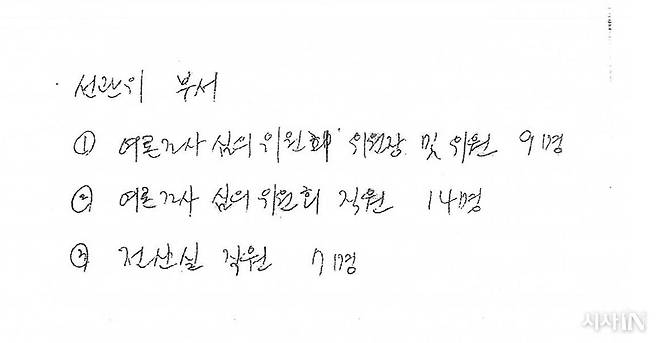 · 선관위 부서
① 여론조사 심의 위원회 위원장 및 위원 9명
② 여론조사 심의 위원회 직원 14명
③ 전산실 직원 7명
시사IN